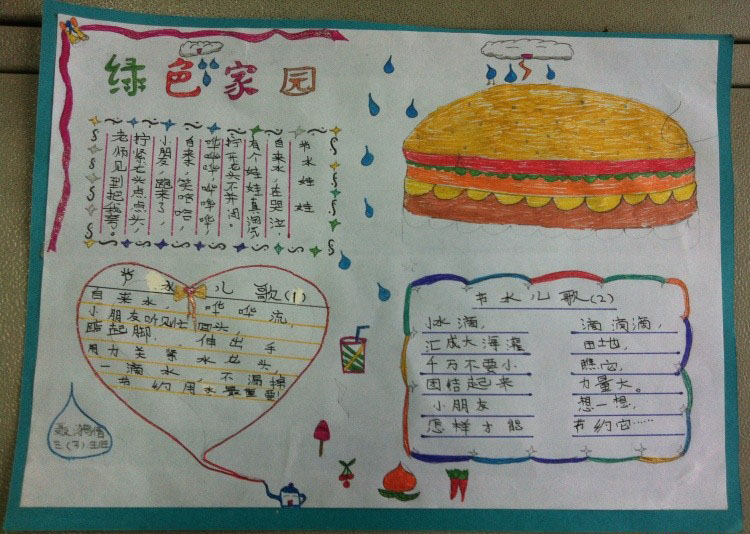 绿色家园
节水娃娃
自来水,在哭泣,
有个娃娃真淘气
拧开龙头不
哗哗哗哗哗哗
自来水,笑哈哈,
小朋友,跑来了,
拧紧龙头点点头,
老师见到把我夸。
节水儿歌(1)
自来水, 哗哗流,
小朋友听见忙回头,
踮起脚, 伸出手
用力关紧水龙头,
一滴水, 不漏掉
节约用水最重要!
节水儿歌(2)
小水滴, 滴滴滴,
汇成大海灌 田地,
千万不要小 瞧它,
团结起来 力量大。
小朋友 想一想,
怎样才能 节约它……